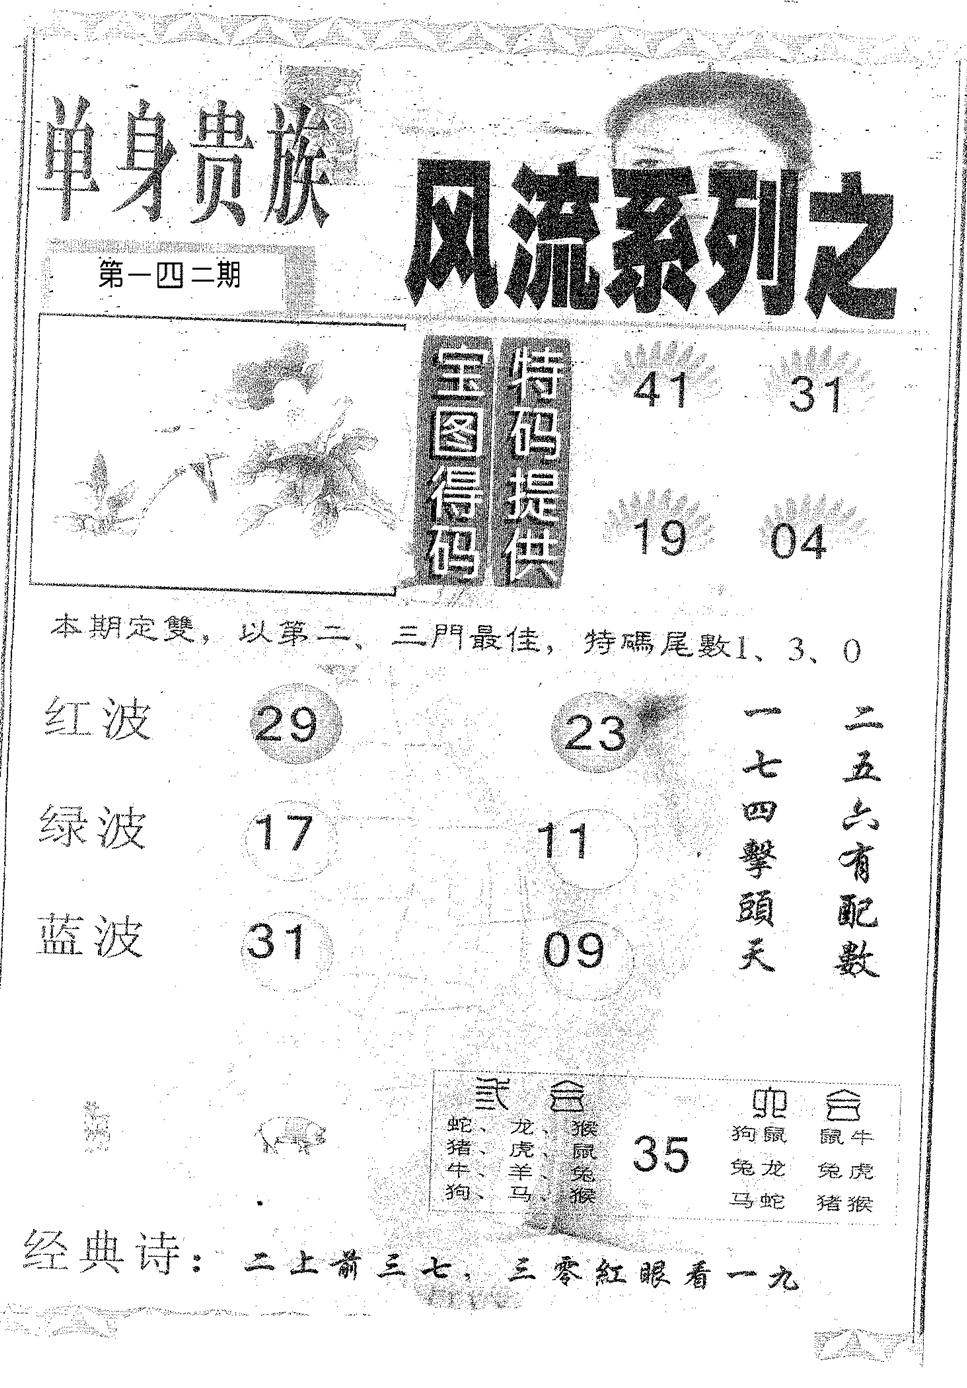 单身贵族
风流系列之
第一四二期
宝图得码
特码提供
41 31
19 04
本期定雙，以第二、三門最佳，特碼尾數1、3、0
红波 29 23
绿波 17 11
蓝波 31 09
二五六有配數
一七四擊頭天
合
蛇、龙、猴
猪、虎、鼠
牛、羊、兔
狗、马、猴
35
六合
狗鼠 鼠牛
兔龙 兔虎
马蛇 猪猴
经典诗：二上前三七，三零紅眼看一九